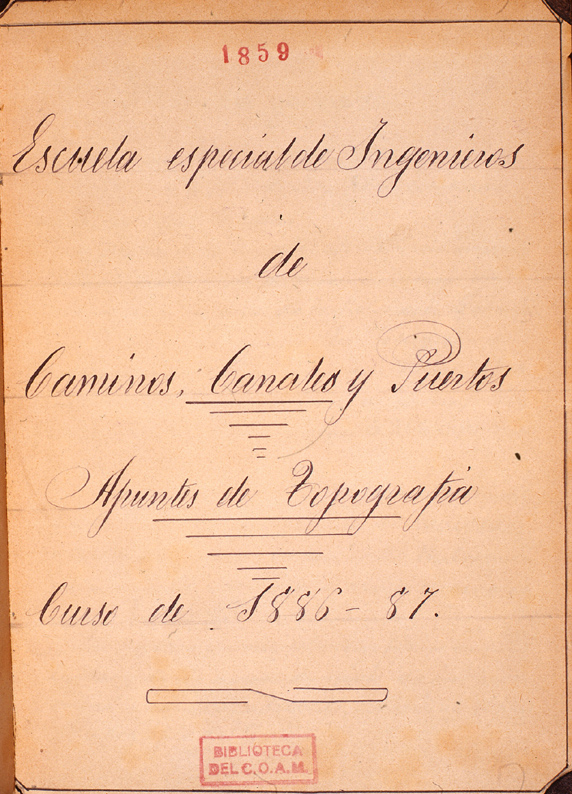 1859
Escuela especial de Ingenieros
de
Caminos, Canales y Puertos
Apuntes de Topografia
Curso de 1886-87.
BIBLIOTECA
DEL C.O.A.M.